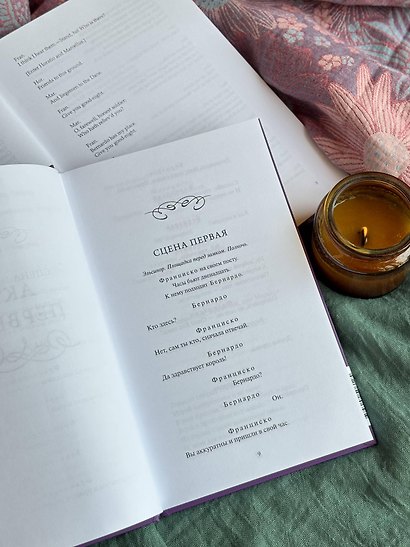 Fran.
I think I hear them.—Stand, ho! Who is there?
[Enter Horatio and Marcellus.]
Hor.
Friends to this ground.
Mar.
And liegemen to the Dane.
Fran.
Give you good-night.
Mar.
O, farewell, honest soldier:
Who hath reliev'd you?
Fran.
Bernardo has my place.
Give you good-night.
СЦЕНА ПЕРВАЯ
Эльсинор. Площадка перед замком. Полночь.
Франциско на своем посту.
Часы бьют двенадцать.
К нему подходит Бернардо.
Бернардо
Кто здесь?
Франциско
Нет, сам ты кто, сначала отвечай.
Бернардо
Да здравствует король!
Франциско
Бернардо?
Бернардо
Он.
Франциско
Вы аккуратны и пришли в свой час.
9